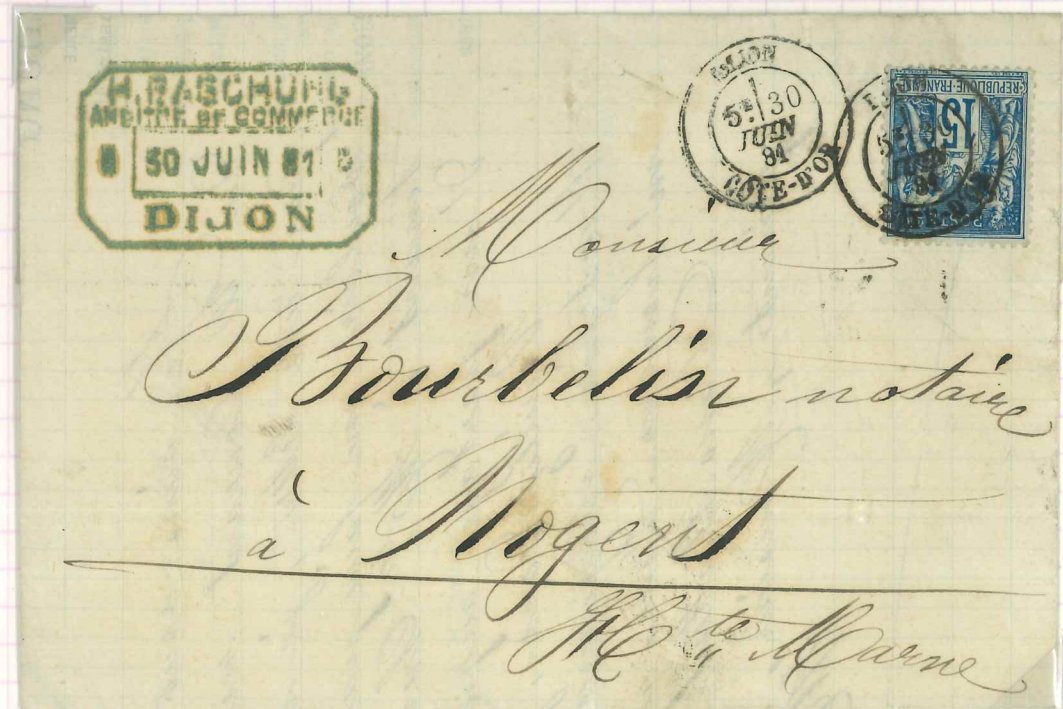 H. RASCHUNG
ARBITRE DE COMMERCE
30 JUIN 81
DIJON
DIJON
5E 30
JUIN
81
COTE-D'OR
5E 30
JUIN
81
COTE-D'OR
15
REPUBLIQUE FRANCAISE
Monsieur
Bourbelin notaire
à Nogent
Hte Marne